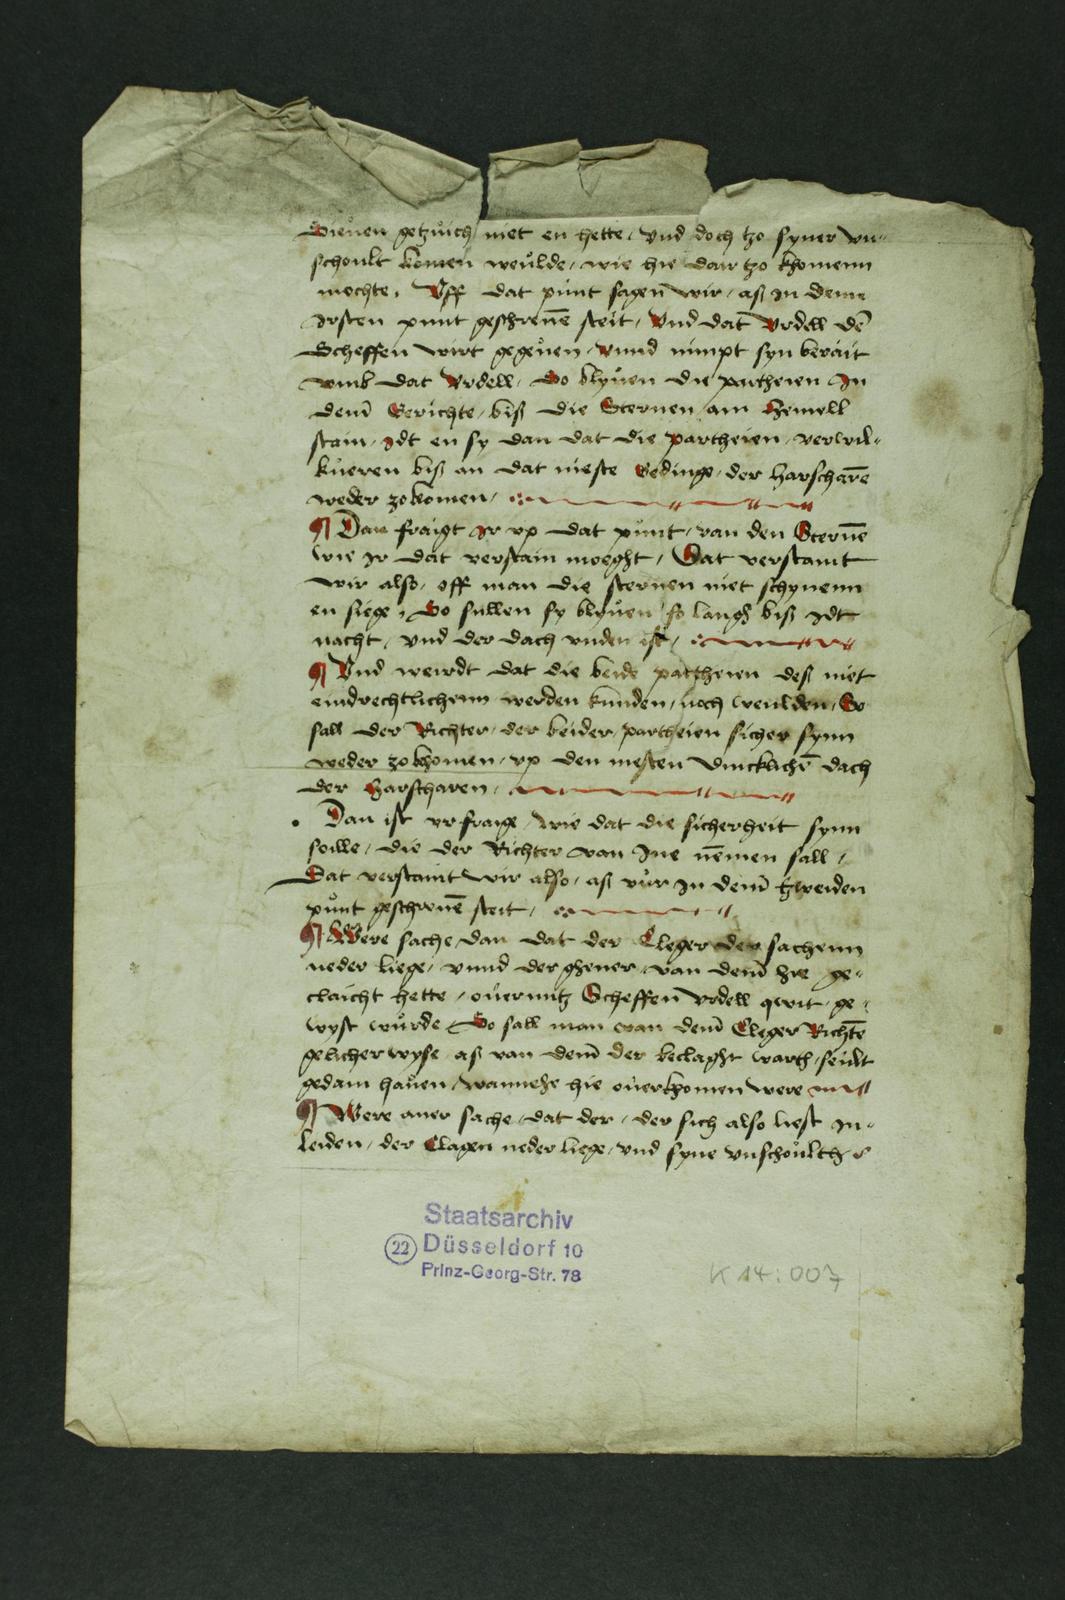 Sieuen getzuich niet en hette, Vnd doch tzo syner vn-
schoult komen weulde, wie hie dair tzo khomenn
mochte, Vff dat punt sagen wir, aß In deme
Irsten punt geschreuē steit, Vnd dat Vrdell dē
Scheffen wirt gegeuen, vnnd nimpt syn berait
vmb dat Vrdell, So blyuen die partheien In
dem̄ Gerichte, biß die Sternen am hemell
stain, Idt en sy dan dat die partheien, verwil-
kueren biß an dat nieste Gedinge, der harscharē
weder zo komen,
¶ Dan fraigt Ir vp dat punt, van den Sternē
wie Ir dat verstain moeght, Dat verstaint
wir also, off man die sternen niet schynenn
en siege, So sullen sy blyuen so langh biß Idt
nacht, vnd der dach vnden ist,
¶ Vnd weirdt dat die beide partheien deß niet
eindrechtlichenn werden kunden, noch weulden, So
sall der Richter, der beider, partheien sicher synn
weder zo khomen, vp den niesten dach
der harscharen,
Dan ist vr fraige, wie dat die sicherheit synn
soille, die der Richter van Ine nēmen sall,
Dat verstaint wir also, aß vur In dem̄ tzweiden
punt geschreuē steit,
¶ Were sache, dan dat der Cleger der sachenn
neder liege, vnnd der ghener, van dem̄ hie ge-
claicht hette, ouermitz Scheffen Vrdell qwit, ge-
wyst wurde, So sall man van dem̄ Cleger Richtē
gelicher wyse, aß van dem̄ der beclaght warth, seult
gedain hauen, wannehe hie ouerkhomen were
¶ Were auer sache, dat der, der sich also liest In-
leiden, der Clagen neder liege, vnd syne vnschoult
Staatsarchiv
22 Düsseldorf 10
Prinz-Georg-Str. 78
K 14:007